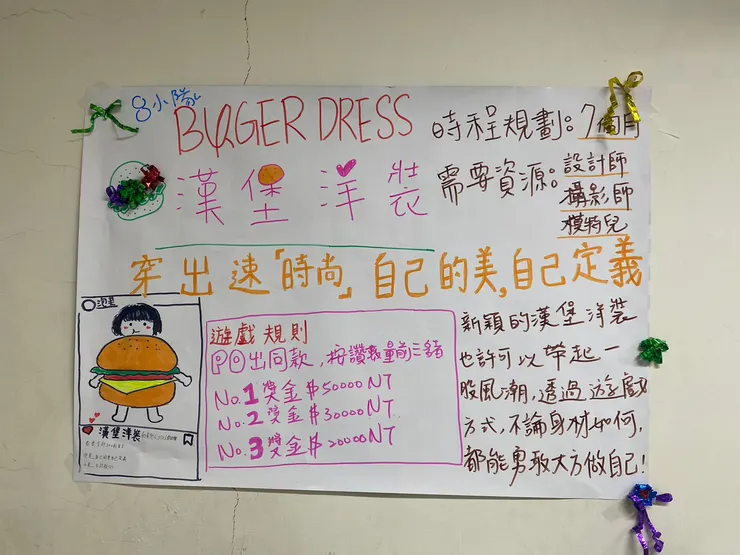 8小隊
BURGER DRESS
漢堡洋裝
時程規劃:7個月
需要資源:設計師
攝影師
模特兒
穿出速「時尚」自己的美,自己定義
遊戲規則
PO出同款,按讚數量前三名
No.1獎金$50000NT
No.2獎金$30000NT
No.3獎金$20000NT
漢堡洋裝
新穎的漢堡洋裝
也許可以帶起一
股風潮,透過遊戲
方式,不論身材如何,
都能勇敢大方做自己!